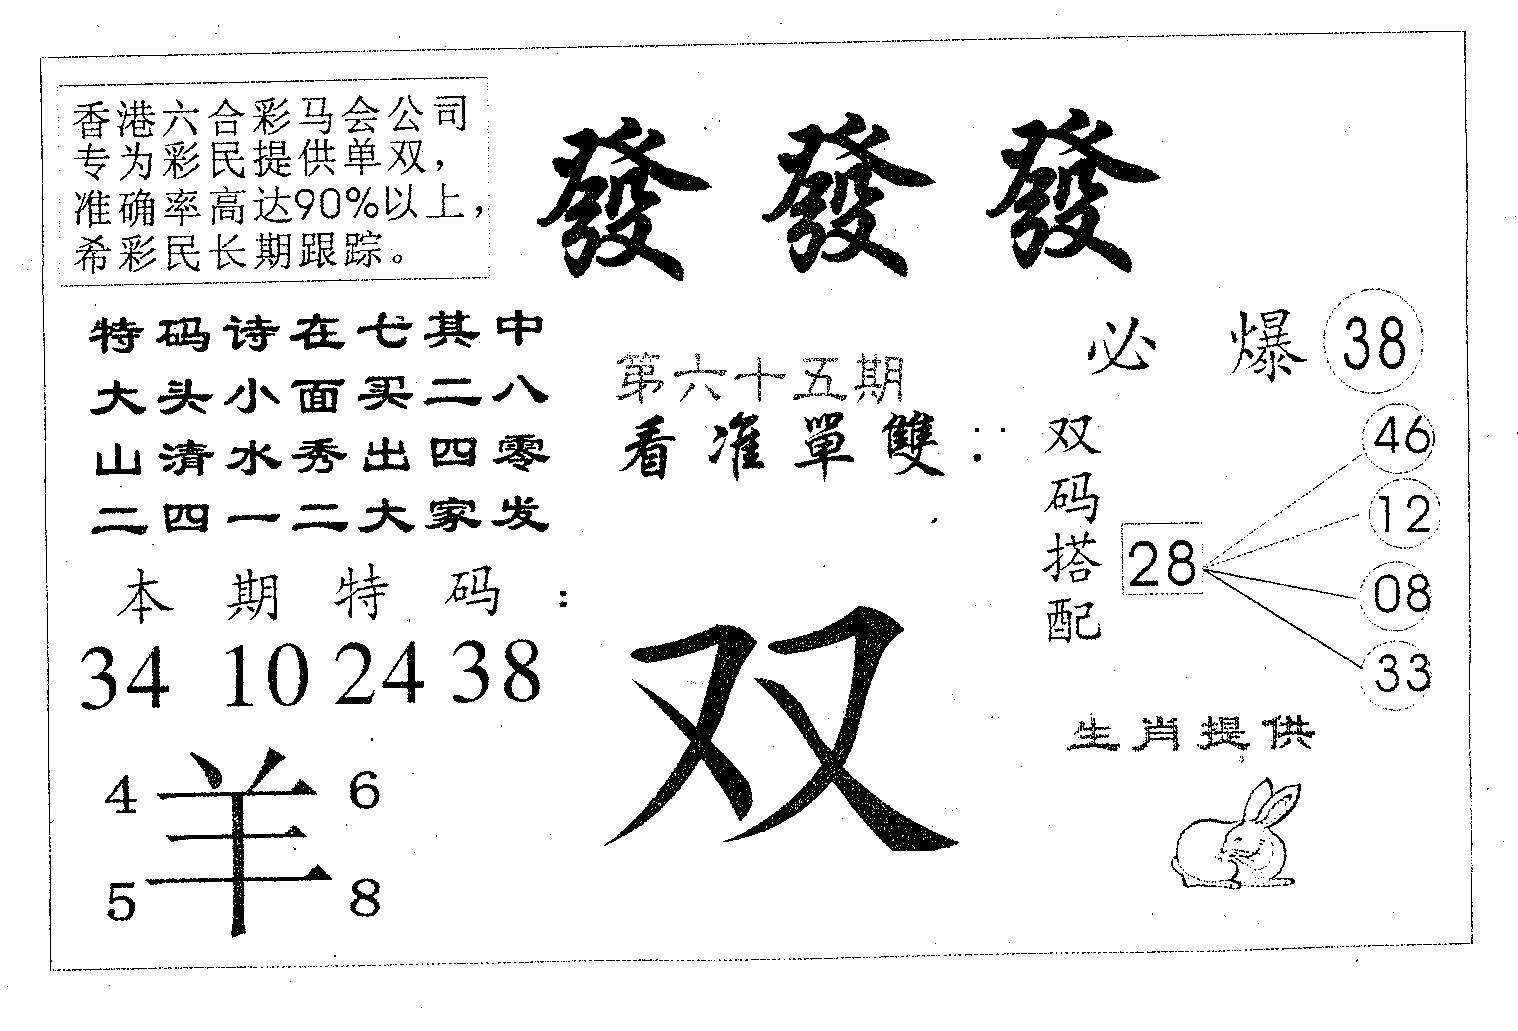 香港六合彩马会公司
专为彩民提供单双，
准确率高达90%以上，
希彩民长期跟踪。
發 發 發
特码诗在七其中
大头小面买二八
山清水秀出四零
二四一二大家发
第六十五期
看准單雙：
必 爆 38
双码搭配
28
46
12
08
33
本 期 特 码：
34 10 24 38
双
生肖提供
4 羊 6
5 8